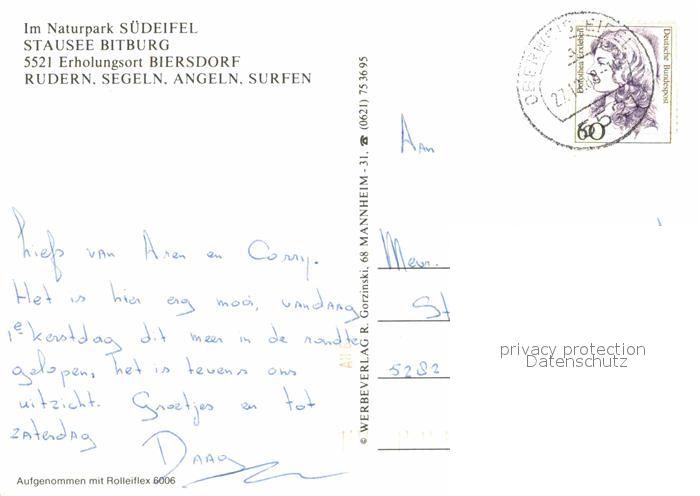 Im Naturpark SÜDEIFEL
STAUSEE BITBURG
5521 Erholungsort BIERSDORF
RUDERN, SEGELN, ANGELN, SURFEN
Dorothea Erxleben
Deutsche Bundespost
60
© WERBEVERLAG R. Gorzinski, 68 MANNHEIM - 31, ☎ (0621) 753695
Aan
Mevr.
St
5282
liefs van Aren en Corry.
Het is hier erg mooi, vandaag
1e kerstdag dit meer in de rondte
gelopen, het is tevens ons
uitzicht. Groetjes en tot
zaterdag
Daag
privacy protection
Datenschutz
Aufgenommen mit Rolleiflex 6006